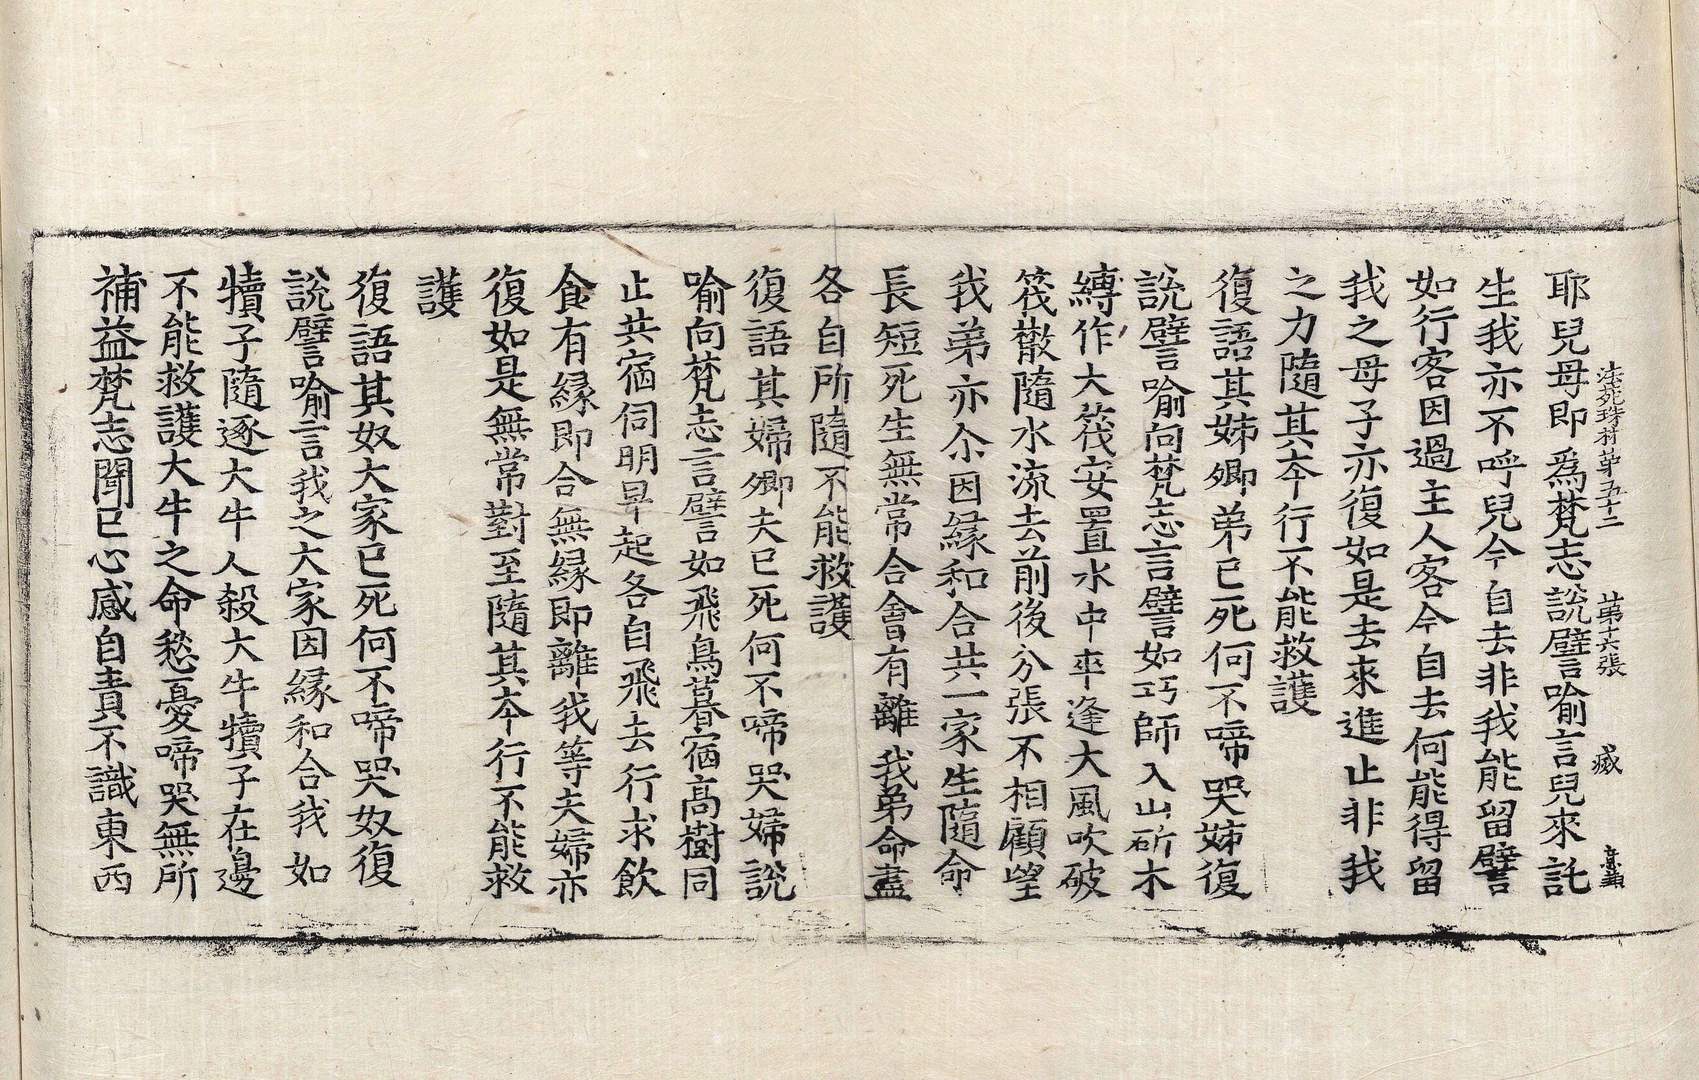 法苑珠林第五十二 第十六張 感
耶兒母即為梵志說譬喻言兒來託
生我亦不呼兒今自去非我能留譬
如行客因過主人客今自去何能得留
我之母子亦復如是去來進止非我
之力隨其夲行不能救護
復語其姊卿弟已死何不啼哭姊復
說譬喻向梵志言譬如巧師入山斫木
縛作大筏安置水中卒逢大風吹破
筏散隨水流去前後分張不相顧望
我弟亦尒因緣和合共一家生隨命
長短死生無常合會有離我弟命盡
各自所隨不能救護
復語其婦卿夫已死何不啼哭婦說
喻向梵志言譬如飛鳥暮宿高樹同
止共宿伺明早起各自飛去行求飲
食有緣即合無緣即離我等夫婦亦
復如是無常對至隨其夲行不能救
護
復語其奴大家已死何不啼哭奴復
說譬喻言我之大家因緣和合我如
犢子隨逐大牛人殺大牛犢子在邊
不能救護大牛之命愁憂啼哭無所
補益梵志聞已心感自責不識東西